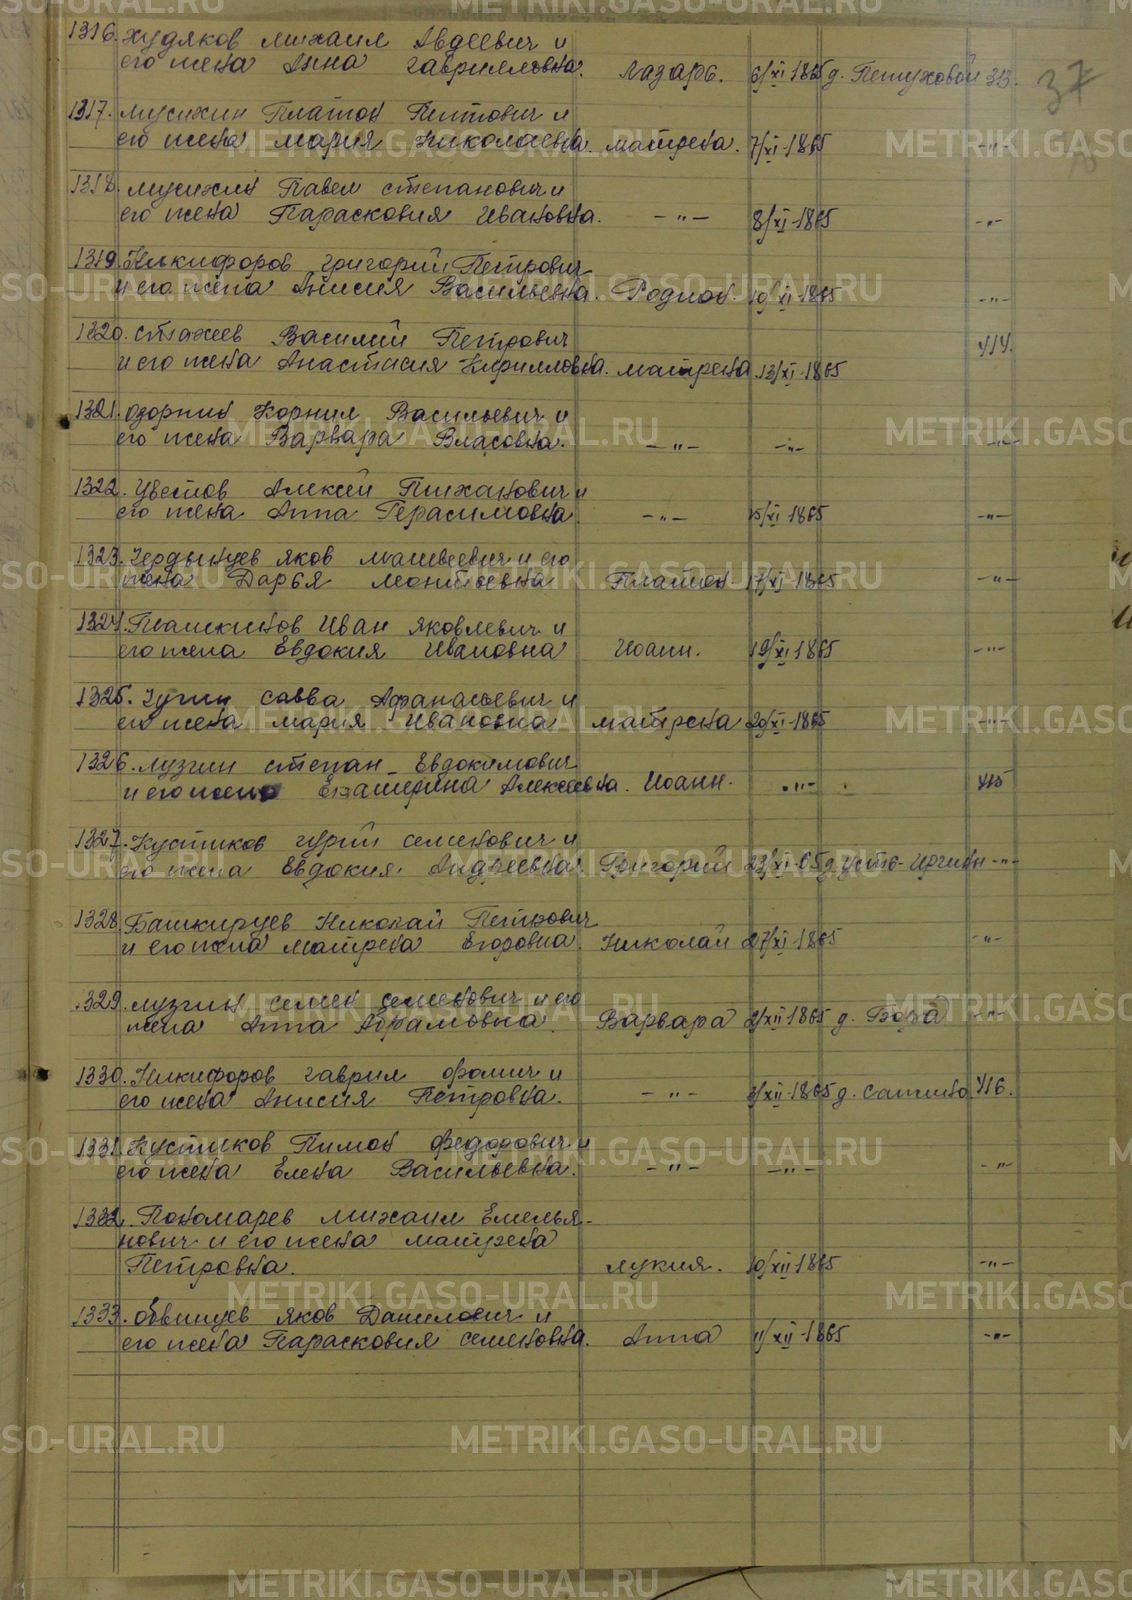 37
1316. Худяков Михаил Авдеевич и
его жена Анна Гаврииловна. Лазарь. 6/XI 1865 д. Петуховой 313.
1317. Мусихин Платон Титович и
его жена Мария Николаевна. Матрена. 7/XI-1865 -"-
1318. Мусихин Павел Степанович и
его жена Парасковия Ивановна. -"- 8/XI-1865 -"-
1319. Никифоров Григорий Петрович
и его жена Анисия Васильевна. Родион. 10/XI-1865 -"-
1320. Стахеев Василий Петрович 414.
и его жена Анастасия Кирилловна. Матрена. 13/XI-1865
1321. Озорнин Корнил Васильевич и
его жена Варвара Власовна. -"- -"- -"-
1322. Цветов Алексей Тиханович и
его жена Анна Герасимовна. -"- 15/XI 1865 -"-
1323. Чердынцев Яков Матвеевич и его
жена Дарья Леонтьевна Платон. 17/XI-1865 -"-
1324. Плаксин Иван Яковлевич и
его жена Евдокия Ивановна Иоанн. 19/XI 1865 -"-
1325. Савва Афанасьевич и
его жена Мария Ивановна Матрена 20/XI-1865 -"-
1326. Лузгин Степан Евдокимович
и его жена Екатерина Алексеевна. Иоанн. -"- 415
1327. Кустиков Гурий Семенович и
его жена Евдокия Андреевна. Григорий 23/XI-65 д Усть-Иргинь -"-
1328. Башкирцев Николай Петрович
и его жена Матрена Егоровна. Николай 27/XI-1865 -"-
1329. Лузгин Семен Семенович и его
жена Анна Абрамовна. Варвара 2/XII 1865 д. Бора -"-
1330. Никифоров Гаврил Фомич и
его жена Анисия Петровна. -"- 3/XII-1865 д. Сатина 416.
1331. Кустиков Пимон Федорович и
его жена Елена Васильевна. -"- -"- -"-
1332. Пономарев Михаил Емелья-
нович и его жена Матрена
Петровна. Лукия. 10/XII-1865 -"-
1333. Обвинцев Яков Данилович и
его жена Парасковия Семеновна. Анна 11/XII-1865 -"-
METRIKI.GASO-URAL.RU